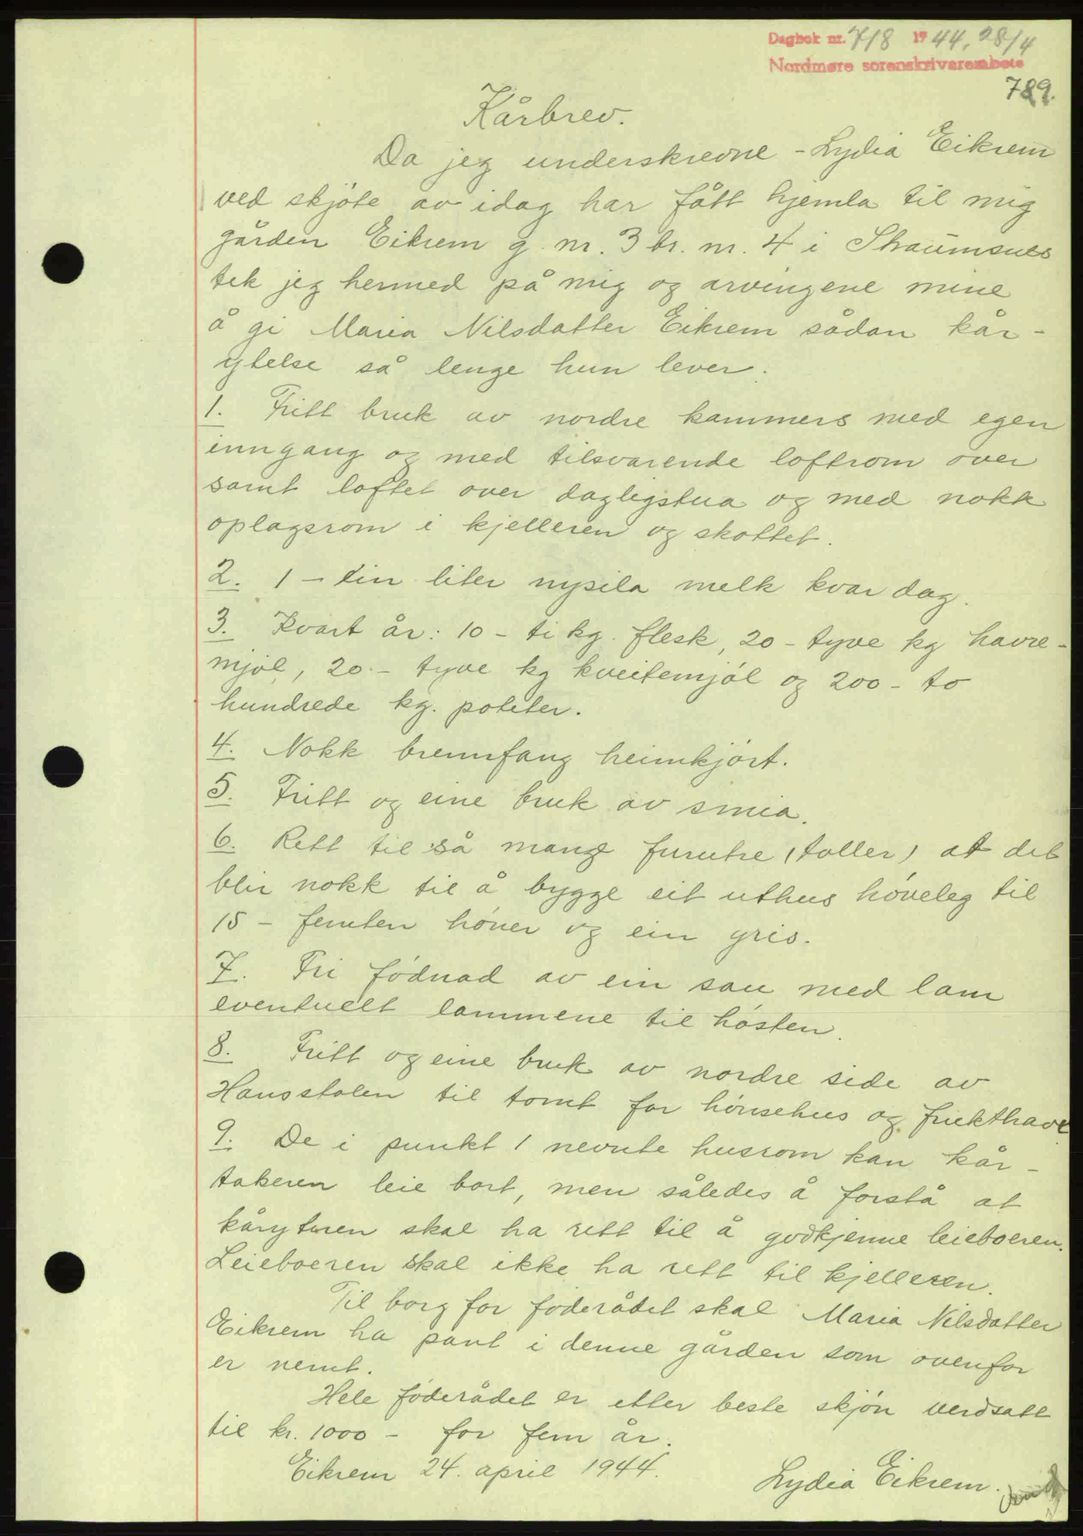 Dagbok nr. 718 1944, 28/4
Nordmøre sorenskrivarembete
789.
Kårbrev.
Da jeg underskrevne - Lydia Eikrem
ved skjöte av idag har fått hjemla til mig
gården Eikrem g. nr. 3 br. nr. 4 i Straumsnes
tek jeg hermed på mig og arvingene mine
å gi Maria Nilsdatter Eikrem sådan kår-
ytelse så lenge hun lever.
1. Fritt bruk av nordre kammers med egen
inngang og med tilsvarende loftrom over
samt loftet over dagligstua og med nokk
oplagsrom i kjelleren og skottet.
2. 1 - ein liter nysila melk kvar dag.
3. Kvart år: 10 - ti kg. flesk, 20 - tyve kg havre-
mjöl, 20 - tyve kg kveitemjöl og 200 - to
hundrede kg. poteter.
4. Nokk brennfang heimkjört.
5. Fritt og eine bruk av smia.
6. Rett til så mange furutre (toller) at det
blir nokk til å bygge eit uthus höveleg til
15 - femten höner og ein gris.
7. Fri födnad av ein sau med lam
eventuelt lammene til hösten.
8. Fritt og eine bruk av nordre side av
Hansstalen til tomt for hönsehus og frukthave
9. De i punkt 1 nevnte husrom kan kår-
takeren leie bort, men således å forstå at
kåryteren skal ha rett til å godkjenne leieboeren.
Leieboeren skal ikke ha rett til kjelleren.
Til borg for föderådet skal Maria Nilsdatter
Eikrem ha pant i denne gården som ovenfor
er nemt.
Hele föderådet er etter beste skjön verdsatt
til kr. 1000 - for fem år.
Eikrem 24. april 1944.
Lydia Eikrem.